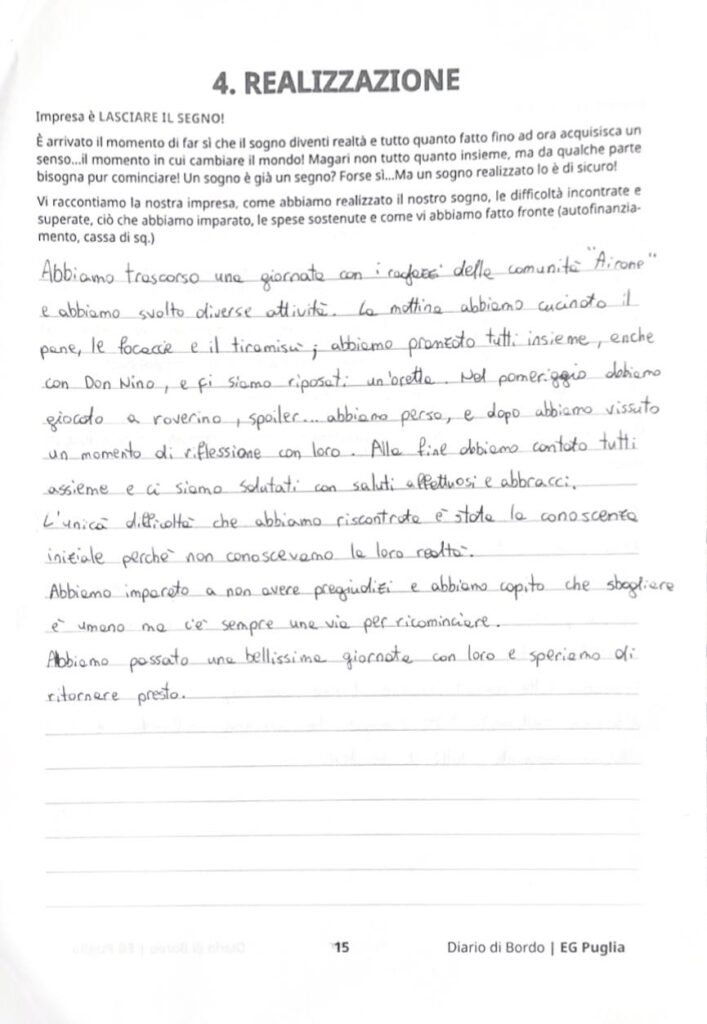 4. REALIZZAZIONE
Impresa è LASCIARE IL SEGNO!
È arrivato il momento di far sì che il sogno diventi realtà e tutto quanto fatto fino ad ora acquisisca un
senso...il momento in cui cambiare il mondo! Magari non tutto quanto insieme, ma da qualche parte
bisogna pur cominciare! Un sogno è già un segno? Forse sì...Ma un sogno realizzato lo è di sicuro!
Vi raccontiamo la nostra impresa, come abbiamo realizzato il nostro sogno, le difficoltà incontrate e
superate, ciò che abbiamo imparato, le spese sostenute e come vi abbiamo fatto fronte (autofinanzia-
mento, cassa di sq.)
Abbiamo trascorso una giornata con i ragazzi della comunità "Airone"
e abbiamo svolto diverse attività. La mattina abbiamo cucinato il
pane, le focaccie e il tiramisù; abbiamo pranzato tutti insieme, anche
con Don Nino, e ci siamo riposati un'oretta. Nel pomeriggio abbiamo
giocato a roverino, spoiler... abbiamo perso, e dopo abbiamo vissuto
un momento di riflessione con loro. Alla fine abbiamo cantato tutti
assieme e ci siamo salutati con saluti affettuosi e abbracci.
L'unica difficoltà che abbiamo riscontrato è stata la conoscenza
iniziale perchè non conoscevamo la loro realtà.
Abbiamo imparato a non avere pregiudizi e abbiamo capito che sbagliare
è umano ma c'è sempre una via per ricominciare.
Abbiamo passato una bellissima giornata con loro e speriamo di
ritornare presto.
15 Diario di Bordo | EG Puglia